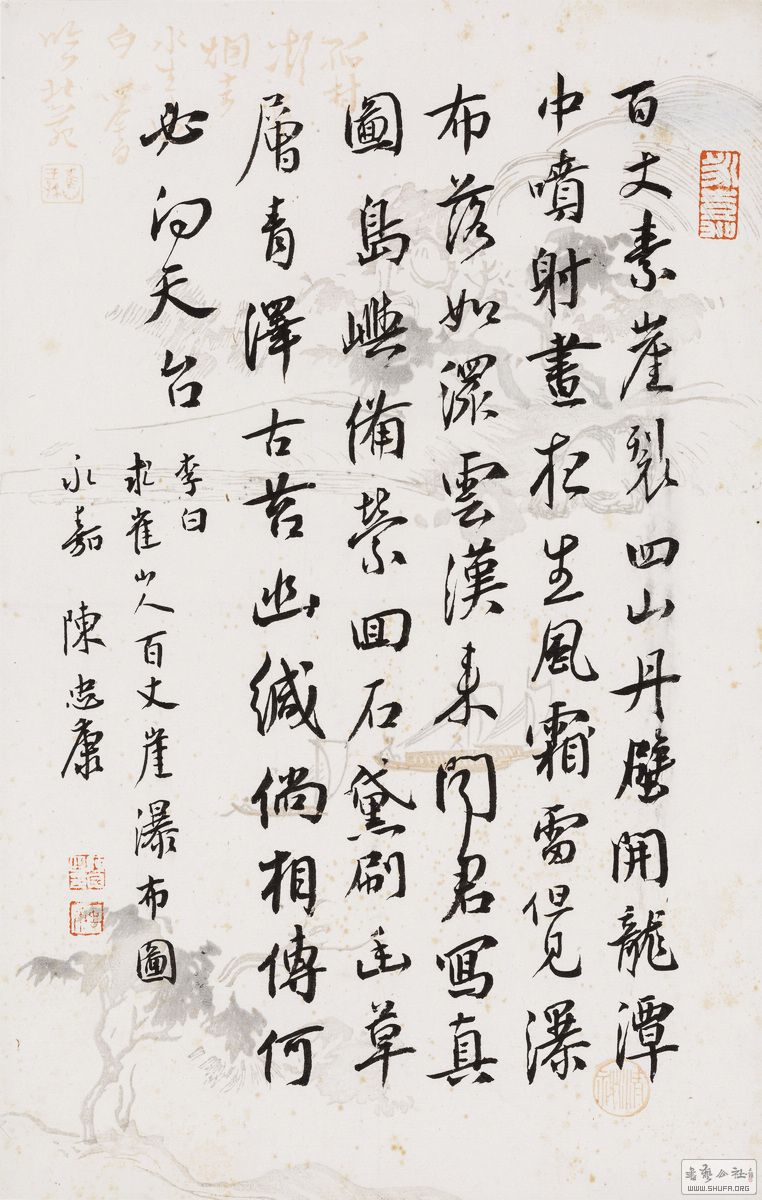 百丈素崖裂四山丹壁開龍潭
中噴射晝夜生風霜雷但見瀑
布落如潨雲漢來聞君寫真
圖島嶼備縈回石黛刷幽草
層青澤古苔幽緘倘相傳何
必向天台
李白
求崔山人百丈崖瀑布圖
永嘉 陳忠康
書藝公社
WWW.SHUFA.ORG